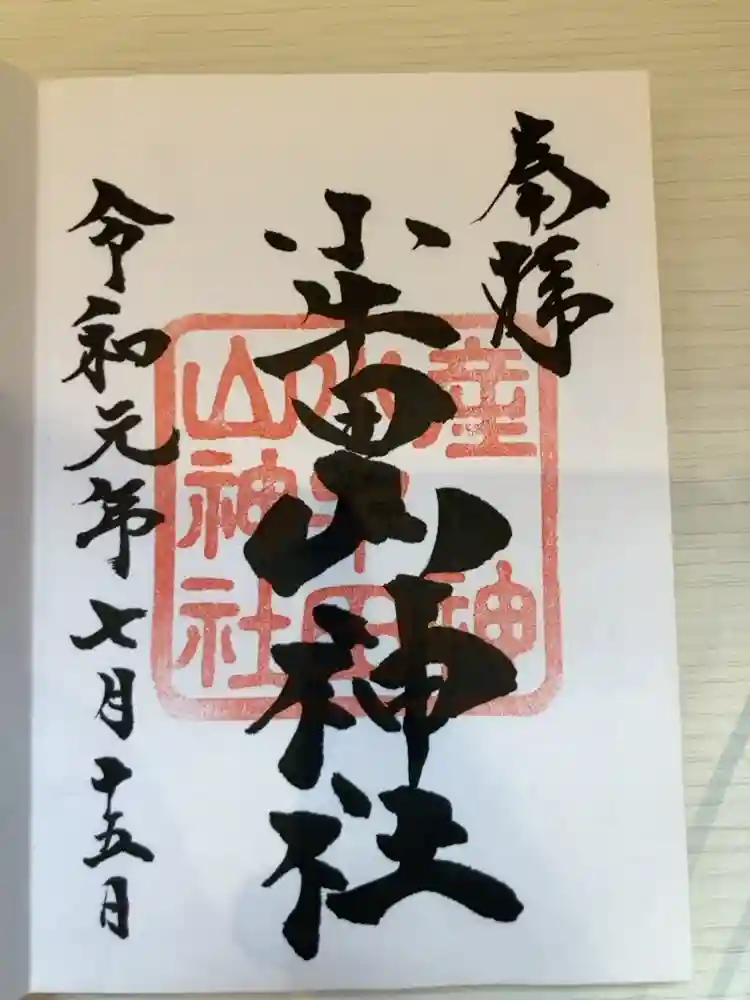 奉拝
小牛田山神社
令和元年七月十五日
産神
小牛田
山神社